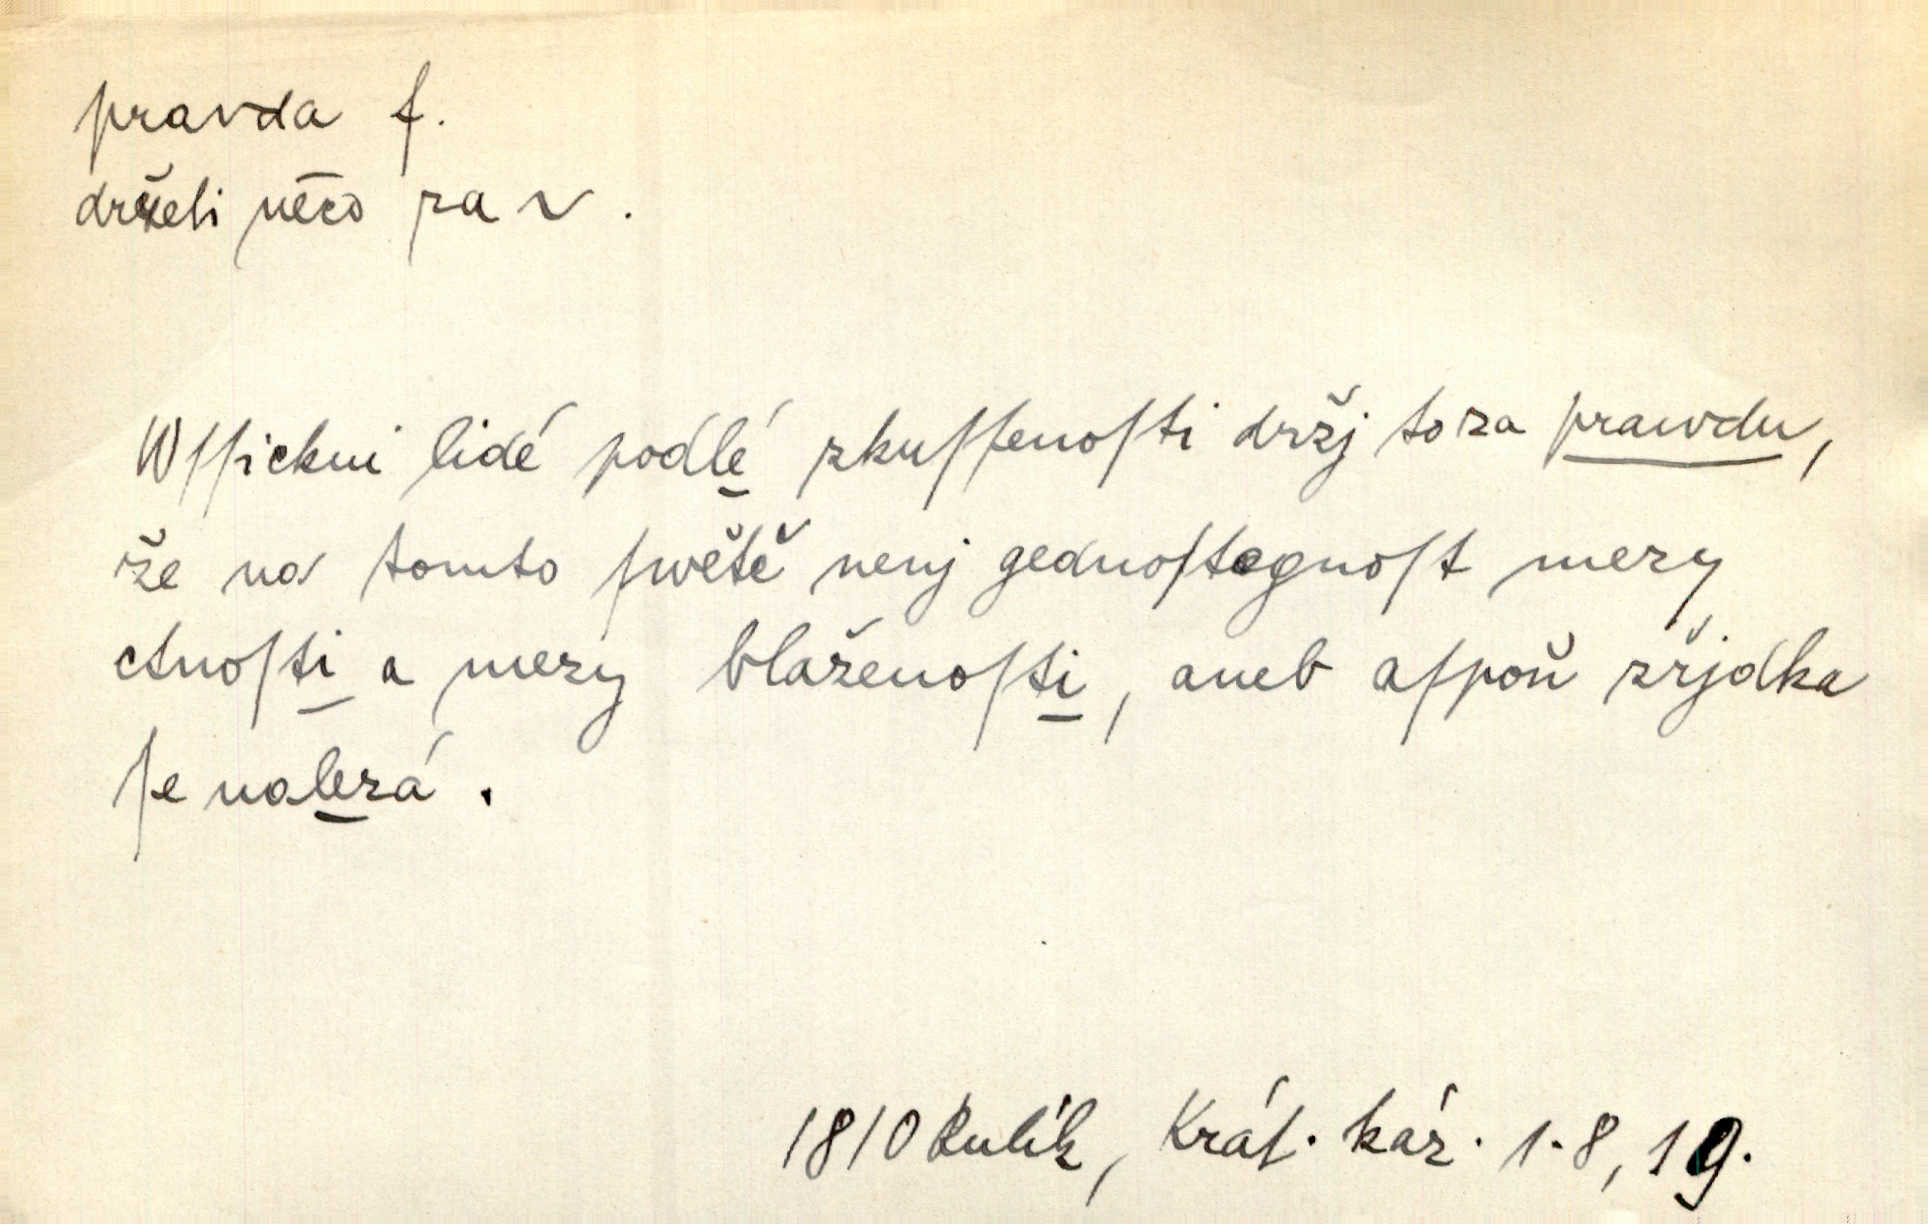 pravda f.
držeti něco za v.
Wſſickni lidé podlé zkuſſenoſti držj to za prawdu,
že na tomto ſwětě nenj gednoſtegnoſt mezy
ctnoſti a mezy blaženoſti, aneb aſpoň zřjdka
ſe nalezá.
1810 Rulík, Krát. káz. 1.8, 19.